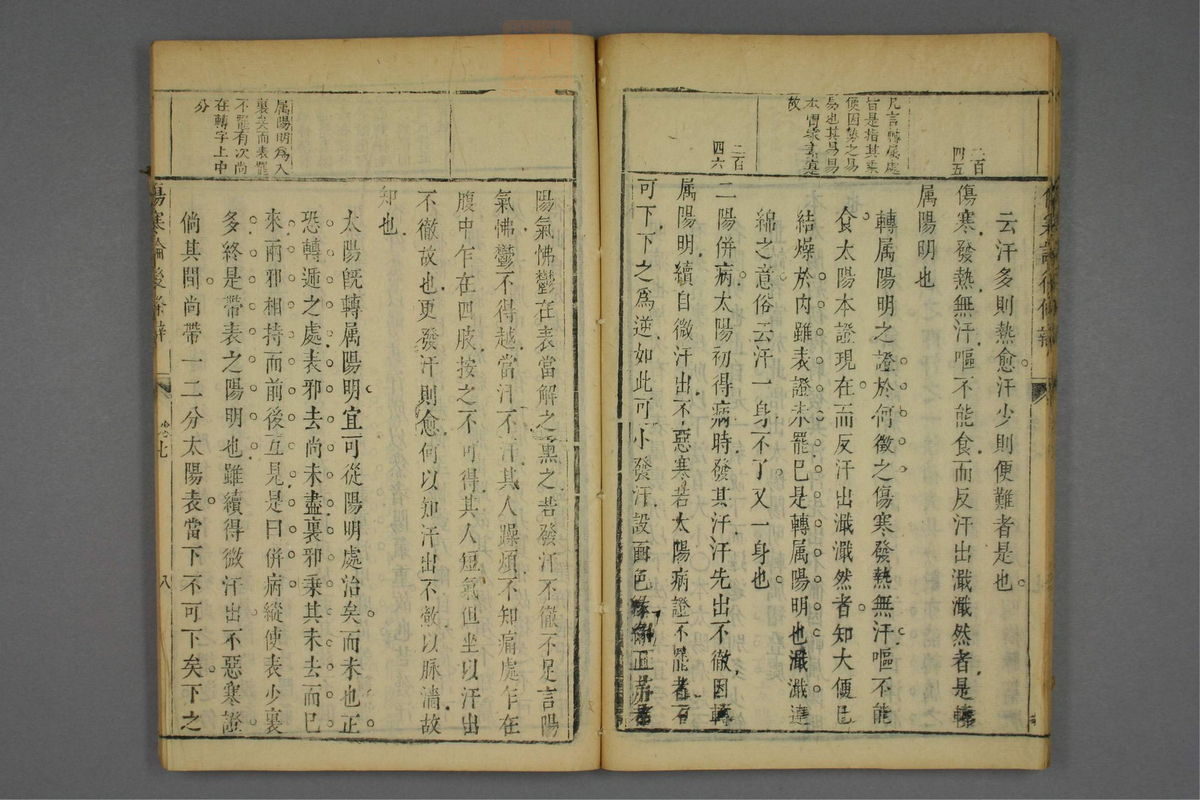 云汗多則熱愈汗少則便難者是也
二百四五
傷寒發熱無汗嘔不能食而反汗出濈濈然者是轉
屬陽明也
凡言轉屬處
皆是指其乘
便因勢之易
易也其易易
故
轉属陽明之證於何徵之傷寒發熱無汗嘔不能
食太陽本證現在而反汗出濈濈然者知大便已
結燥於内雖表證未罷已是轉属陽明也濈濈連
綿之意俗云汗一身不了又一身也
二百四六
二陽併病太陽初得病時發其汗汗先出不徹因轉
属陽明續自微汗出不惡寒若太陽病證不罷者不
可下下之爲逆如此可小發汗設面色緣緣正赤者
陽氣怫鬱在表當解之熏之若發汗不徹不足言陽
氣怫鬱不得越當汗不汗其人躁煩不知痛處乍在
腹中乍在四肢按之不可得其人短氣但坐以汗出
不徹故也更發汗則愈何以知汗出不徹以脉濇故
知也
属陽明爲入
裏矣而表罷
不罷有次尚
在轉字上中
分
太陽既轉属陽明宜可從陽明處治矣而未也正
恐轉遞之處表邪去尚未盡裏邪乘其未去而已
來兩邪相持而前後互見是曰併病縱使表少裏
多終是帶表之陽明也雖續得微汗出不惡寒證
倘其間尚帶一二分太陽表當下不可下矣下之
傷寒論後條辨
卷七
八